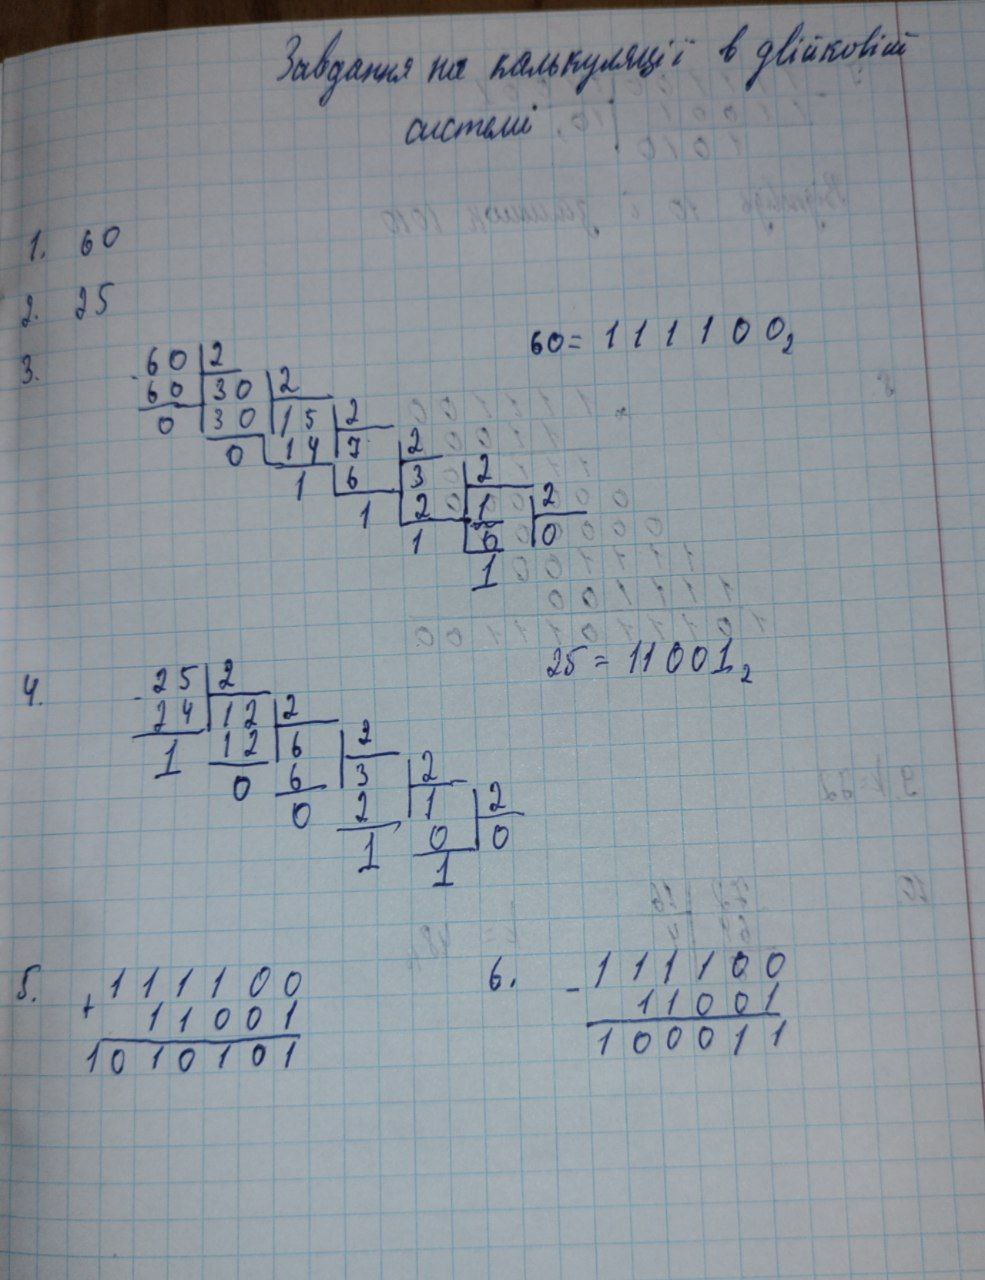 Завдання на калькуляції в двійковій
системі
1. 60
2. 25
3.
60 = 111100₂
60 2
60 30 2
0 30 15 2
0 14 7 2
1 6 3 2
1 2 1 2
1 0 0
1
4.
25 = 11001₂
- 25 2
24 12 2
1 12 6 2
0 6 3 2
0 2 1 2
1 0 0
1
5.
111100
+ 11001
1010101
6.
- 111100
11001
100011